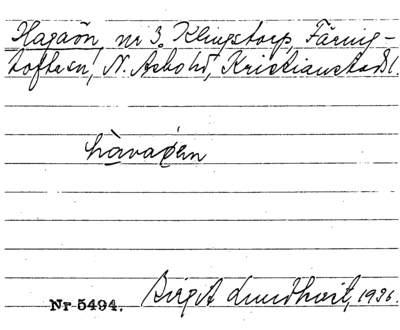 Hagaön, nr 3. Klingstorp, Färing-
tofta sn, N. Åsbo hd, Kristianstads l.
hàvaøen
Nr 5494. Birgit Lundkvist, 1936.